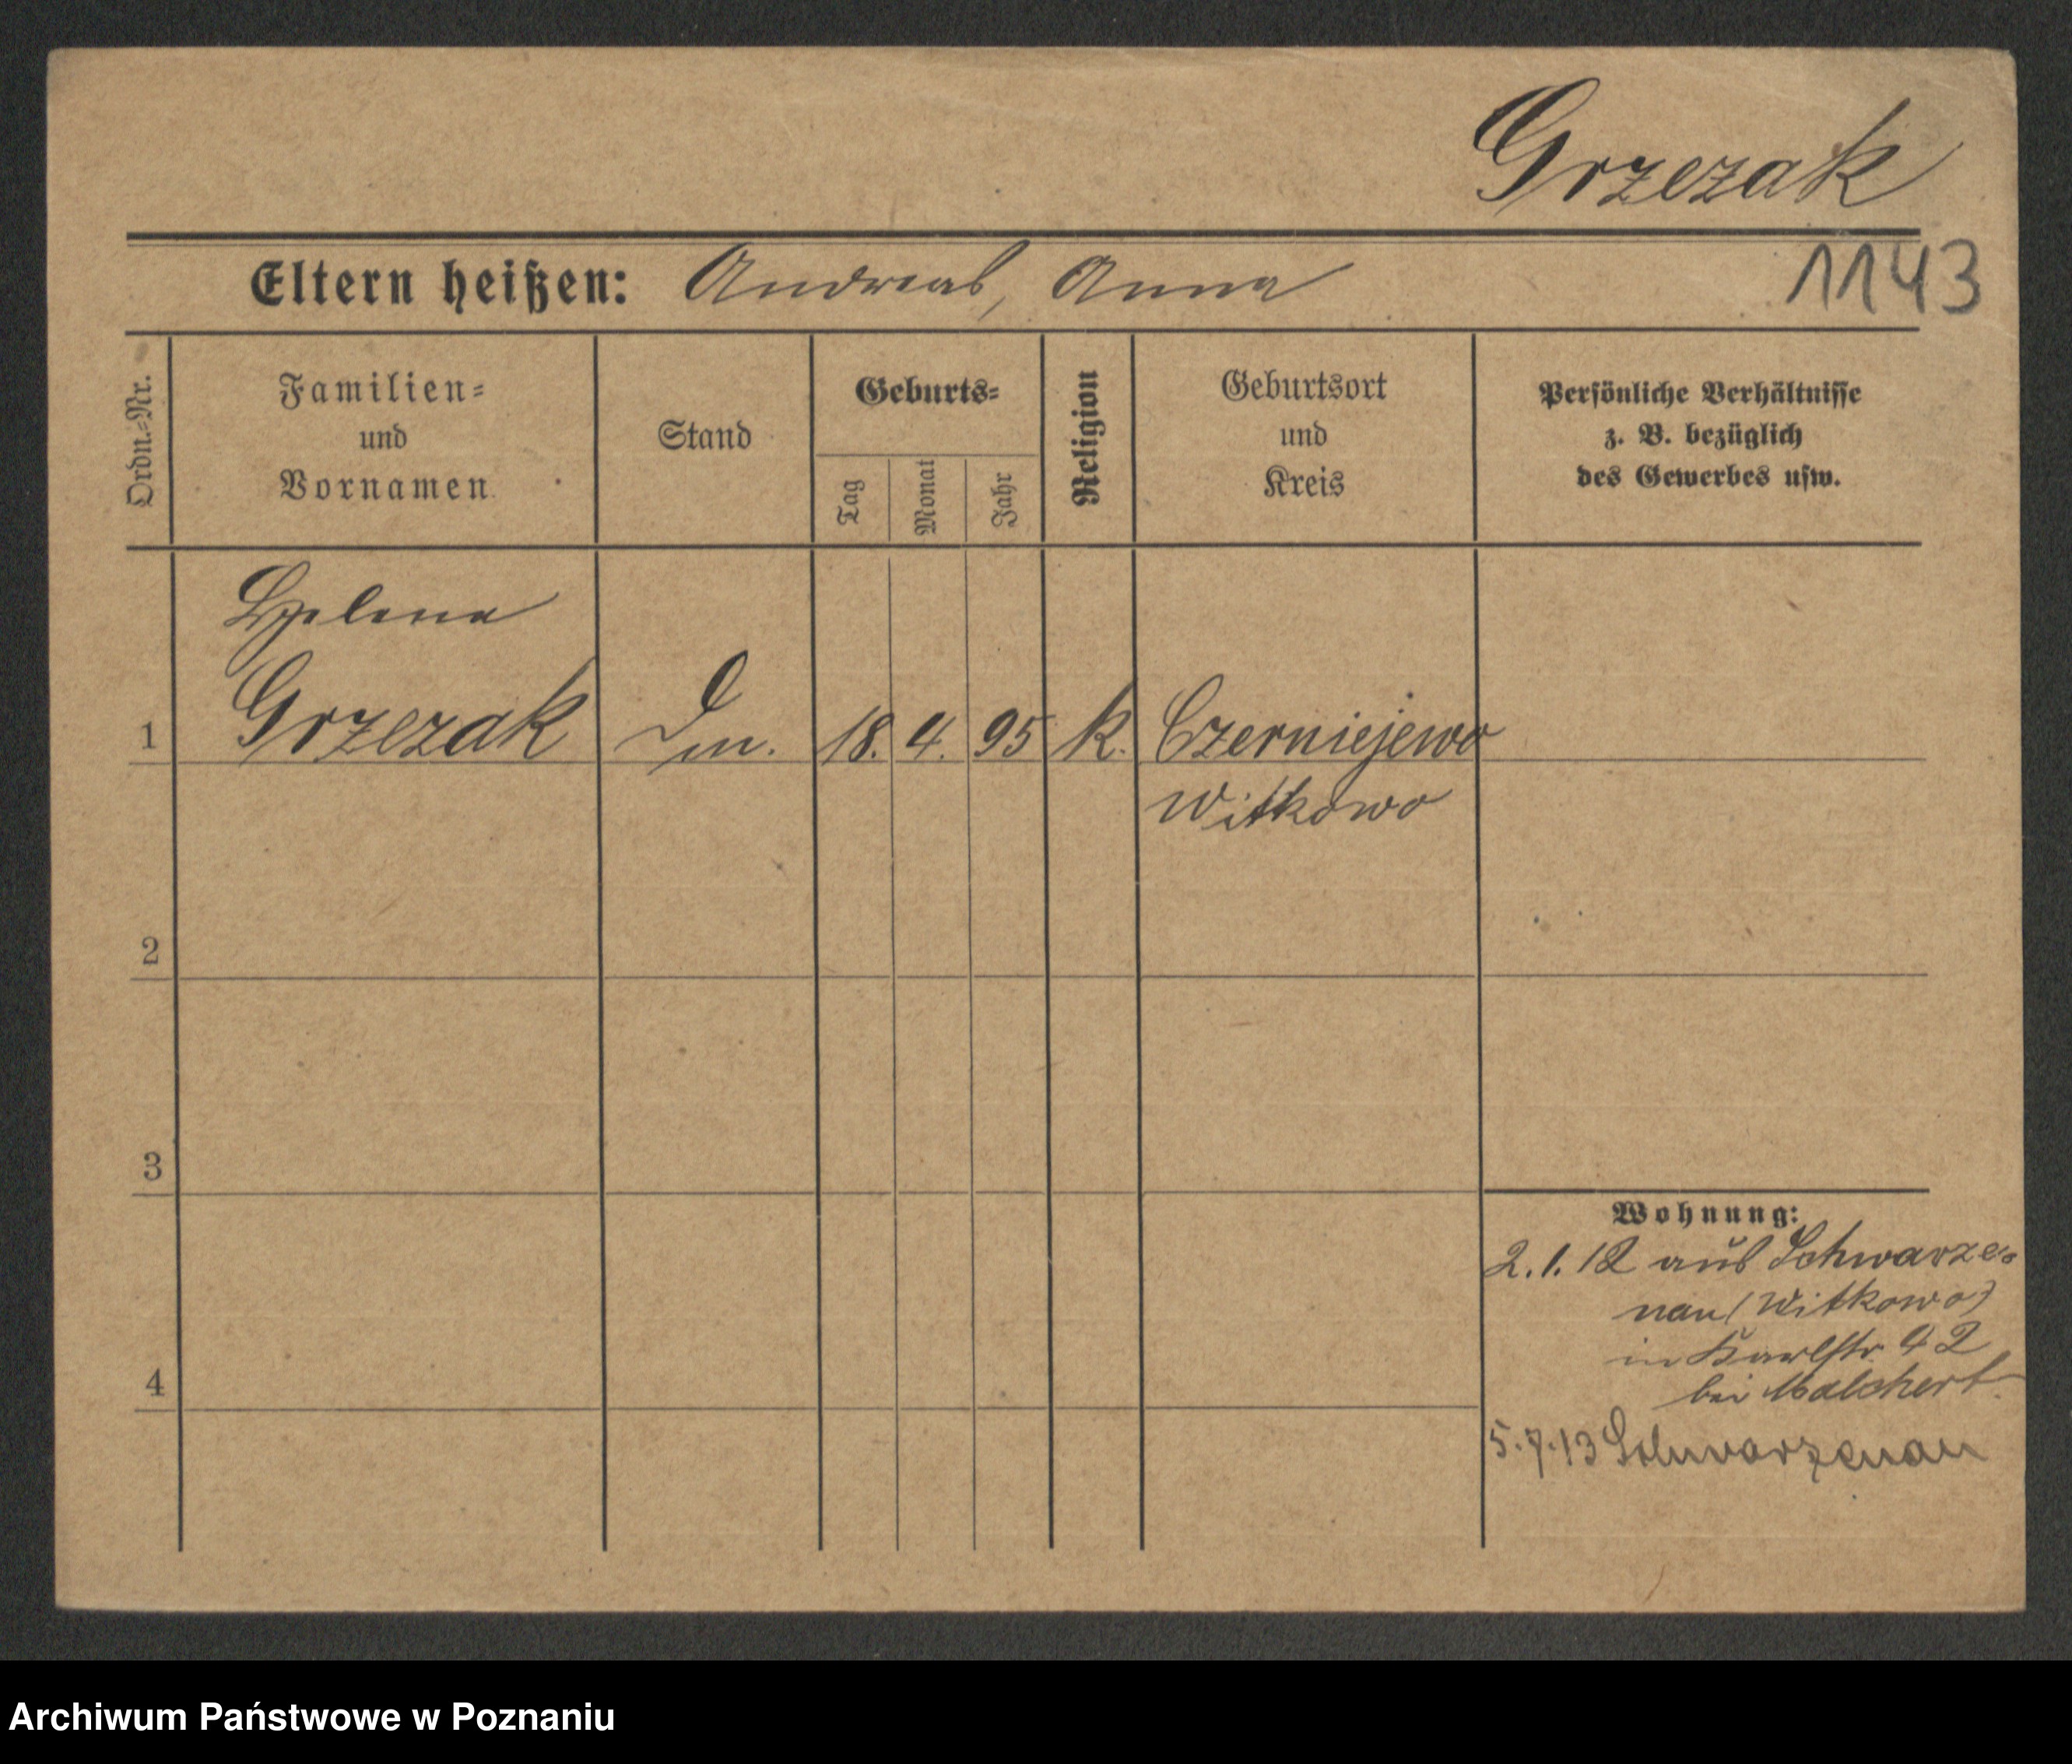 Grzezak
Eltern heißen: Andreas, Anna
1143
Ordn.-Nr.
Familien-
und
Vornamen
Stand
Geburts-
Tag
Monat
Jahr
Religion
Geburtsort
und
Kreis
Persönliche Verhältnisse
z. B. bezüglich
des Gewerbes usw.
Helena
1 Grzezak 18. 4. 95 k. Czerniejewo
Witkowo
2
3
Wohnung:
2.1.12 aus Schwarze-
nau (Witkowo)
in Karlstr. 42
4
bei Malchert
5.7.13 Schwarzenau
Archiwum Państwowe w Poznaniu